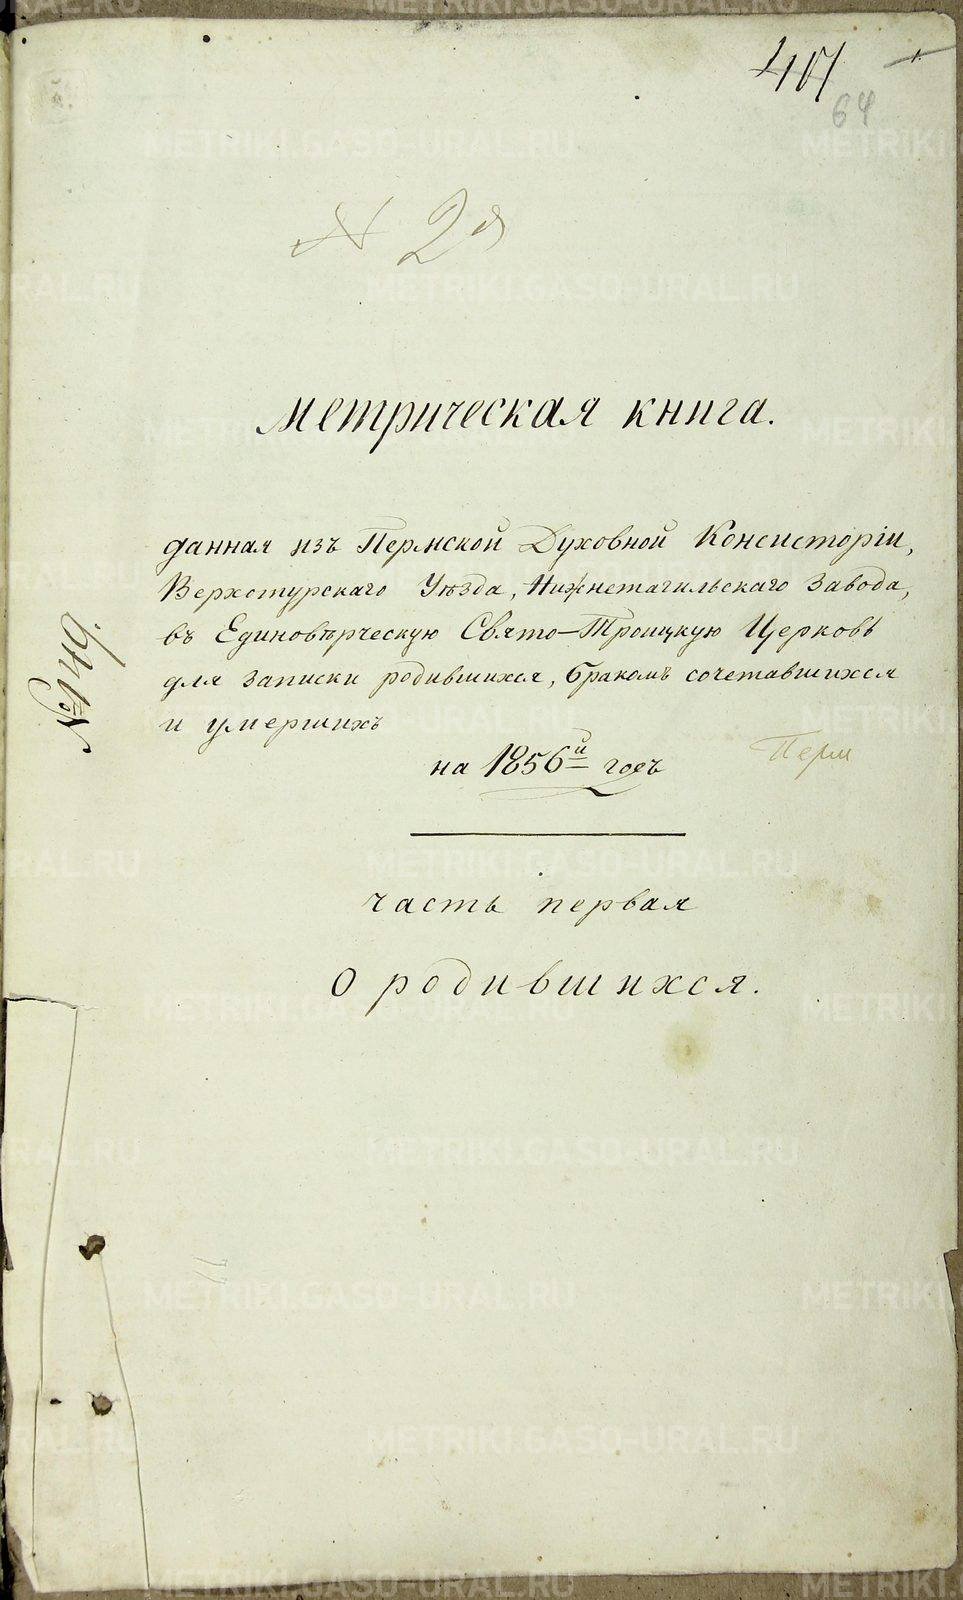 64
№ 2й
Метрическая книга.
данная изъ Пермской Духовной Консисторіи,
Верхотурскаго Уѣзда, Нижнетагильскаго Завода,
въ Единовѣрческую Свято-Троицкую Церковь
для записки родившихся, бракомъ сочетавшихся
и умершихъ
на 1856й годъ
Перм
часть первая
О родившихся.
METRIKI.GASO-URAL.RU